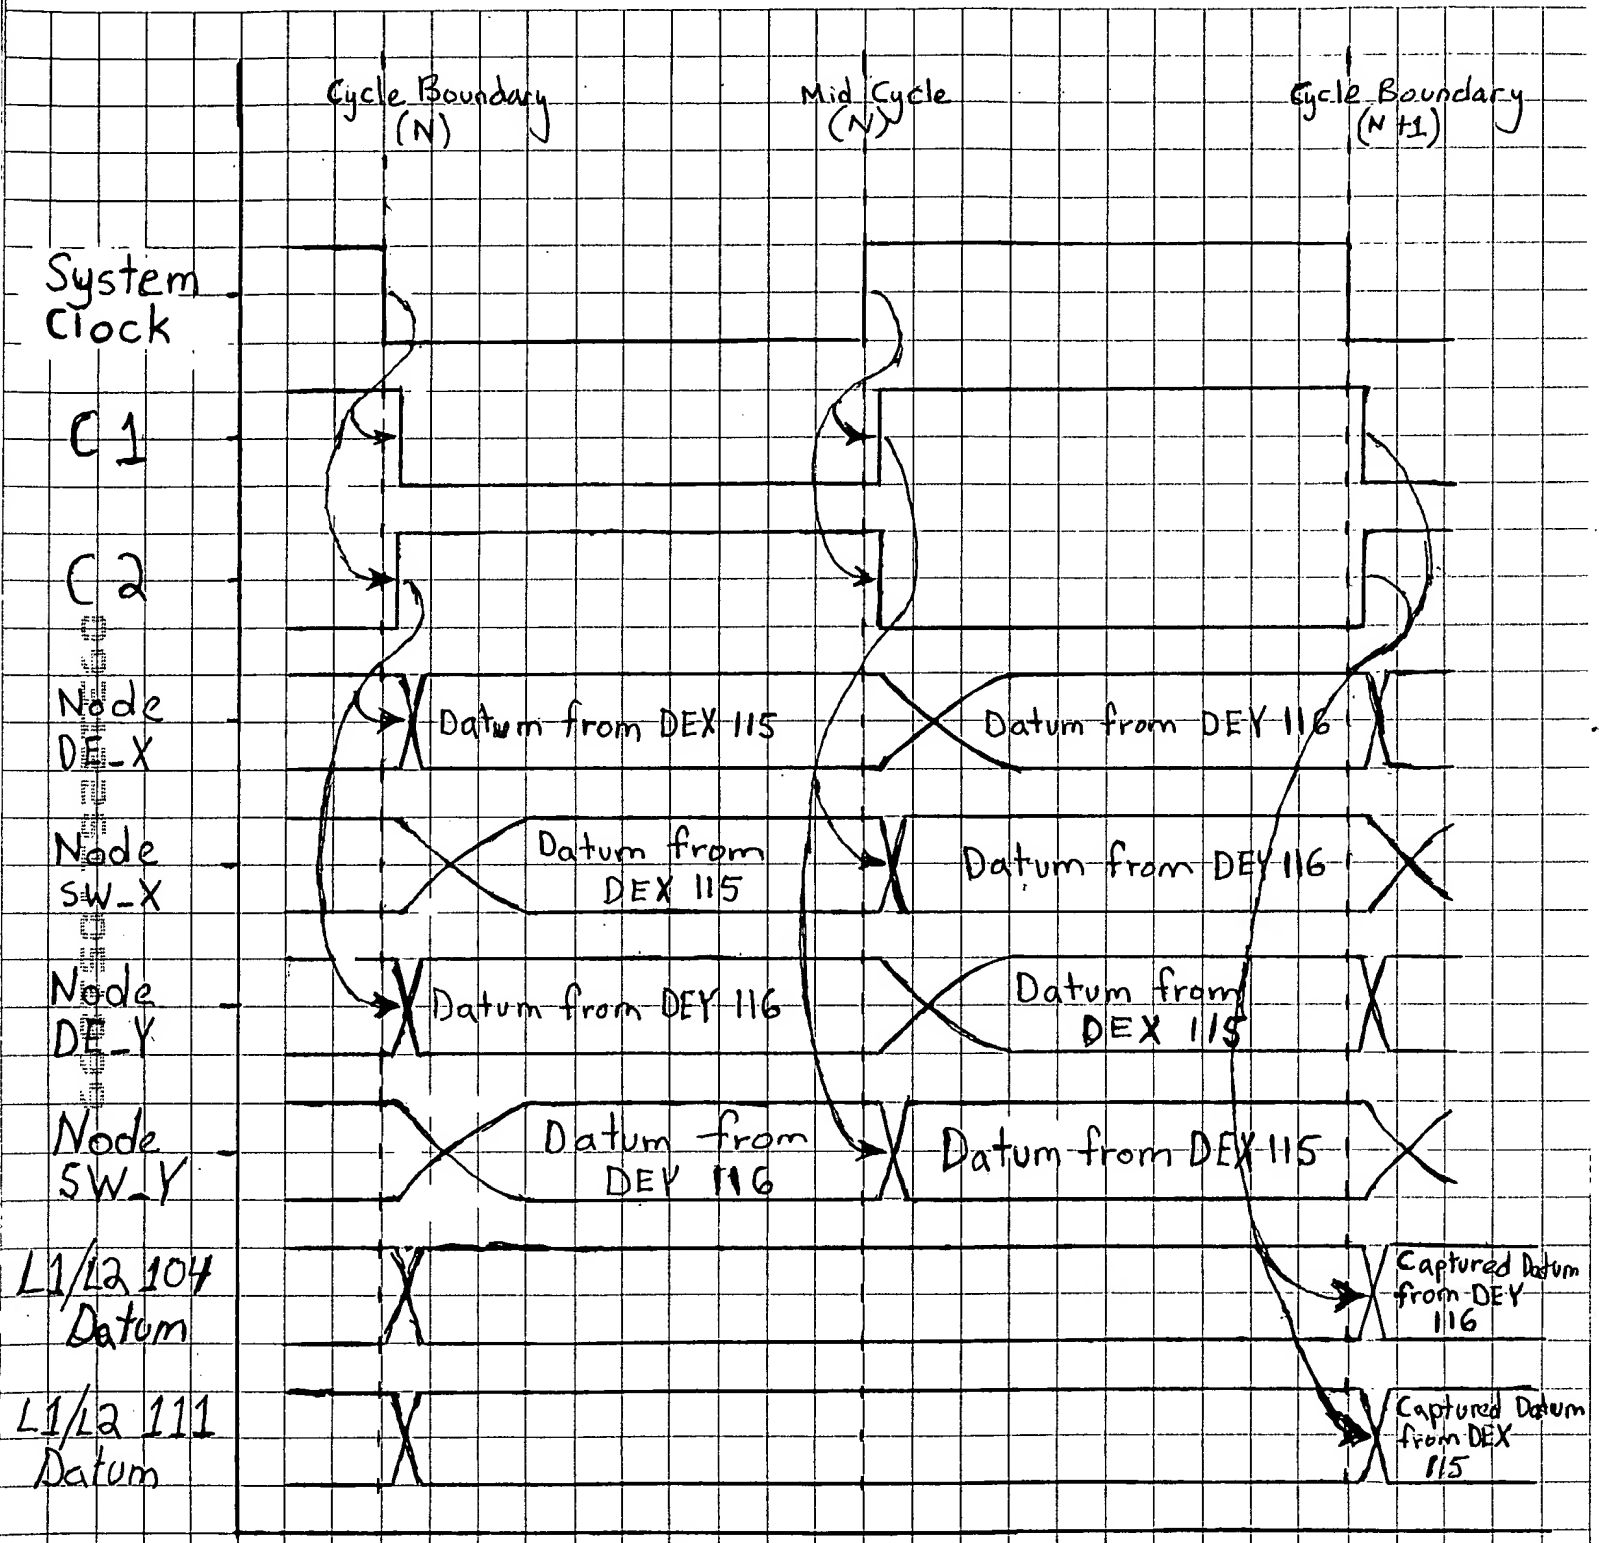 Cycle Boundary
(N)
Mid Cycle
(N)
Cycle Boundary
(N+1)
System
Clock
C1
C2
Node
DE_X
Datum from DEX 115
Datum from DEY 116
Node
SW_X
Datum from
DEX 115
Datum from DEY 116
Node
DE_Y
Datum from DEY 116
Datum from
DEX 115
Node
SW_Y
Datum from
DEY 116
Datum from DEX 115
L1/L2 104
Datum
Captured Datum
from DEY
116
L1/L2 111
Datum
Captured Datum
from DEX
115